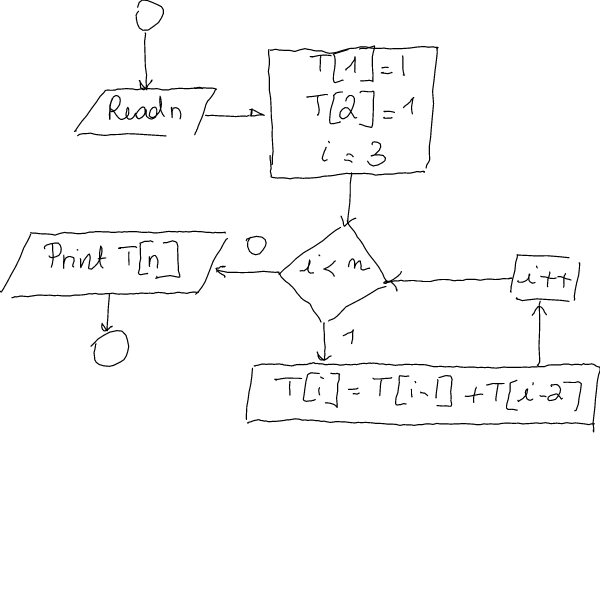 Read n
T[1]=1
T[2]=1
i=3
i<n
0
Print T[n]
1
T[i]=T[i-1]+T[i-2]
i++